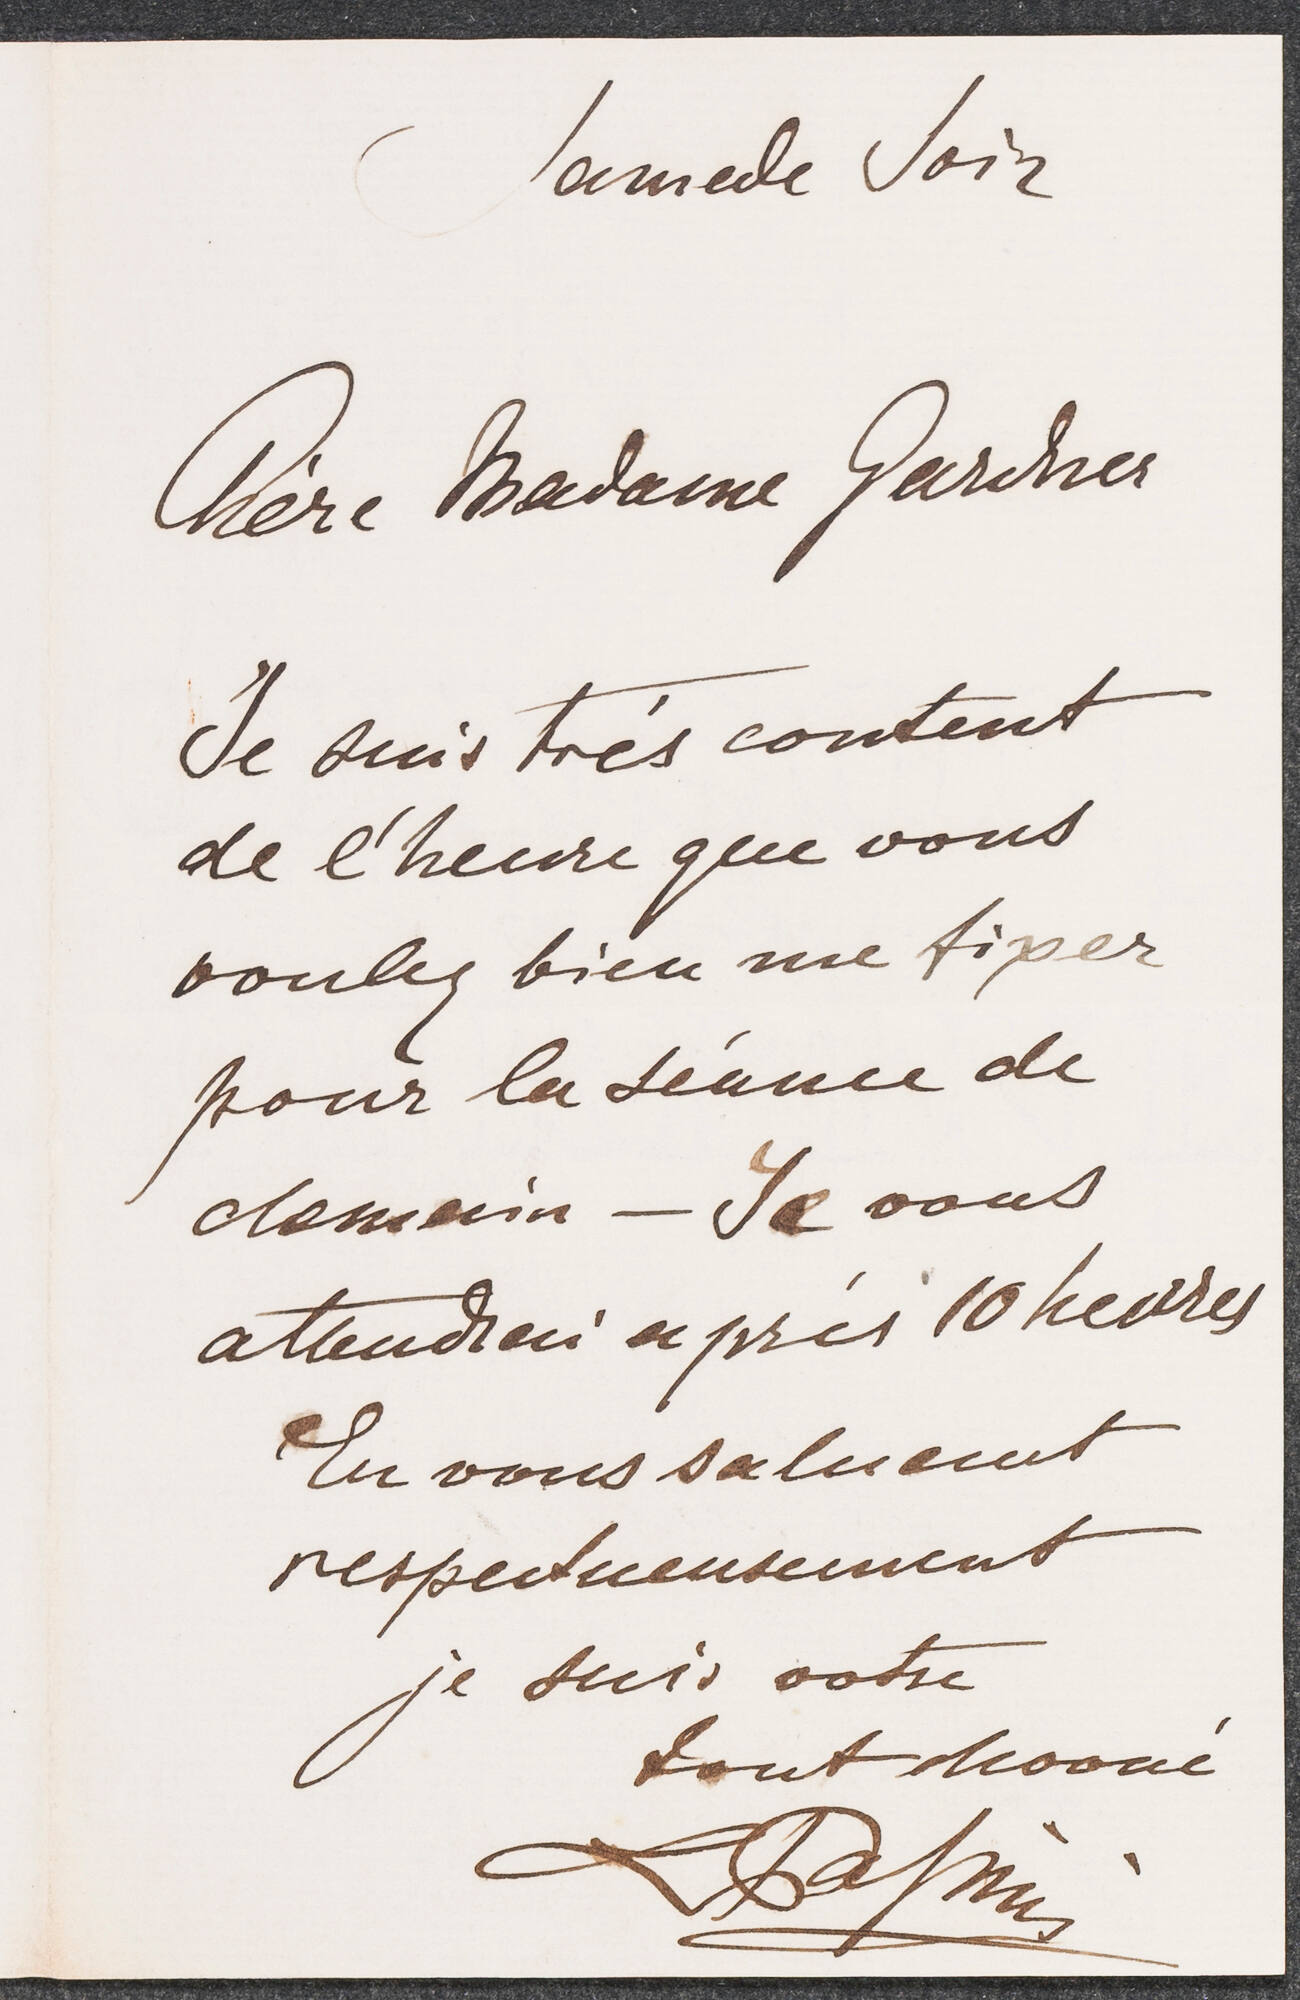 Samede Soir
Chère Madame Gardner
Je suis trés content
de l'heure que vous
voulez bien me fixer
pour la séance de
demain — Je vous
attendrai aprés 10 heures
En vous saluent
respectueusement
je suis votre
tout devoué